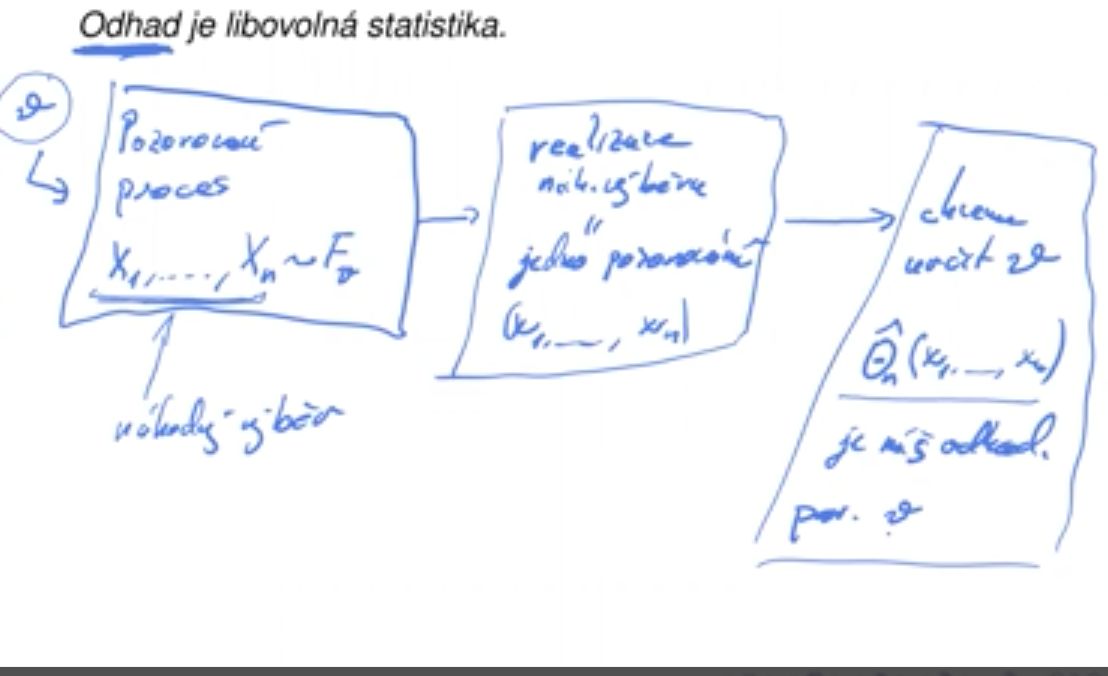 Odhad je libovolná statistika.
ϑ
Pozorovací
proces
X₁, ...., Xₙ ~ F_ϑ
náhodný výběr
realizace
náh. výběru
"jedno pozorování"
(x₁, ..., xₙ)
chceme
určit ϑ
Θ̂ₙ(x₁, ..., xₙ)
je náš odhad.
par. ϑ